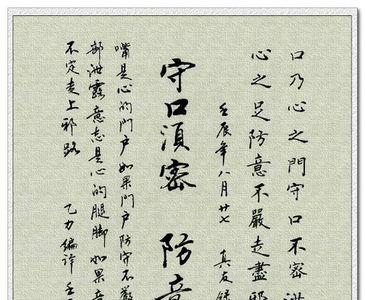 口乃心之門守口不密洩
心之足防意不嚴走盡邪
壬辰年八月廿七 真友
守口須密 防意
嘴是心的門户如果門户防守不嚴
都泄露意志是心的腿脚如果意
不定走上邪路 乙力編译 壬